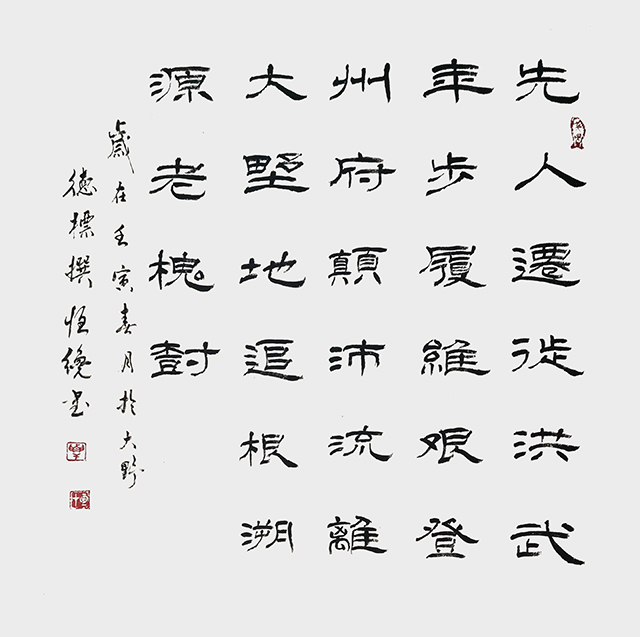 先人遷徙洪武
年步履維艱登
州府顛沛流離
大野地追根溯
源老槐尌
歲在壬寅春月於大野
德標撰恒書